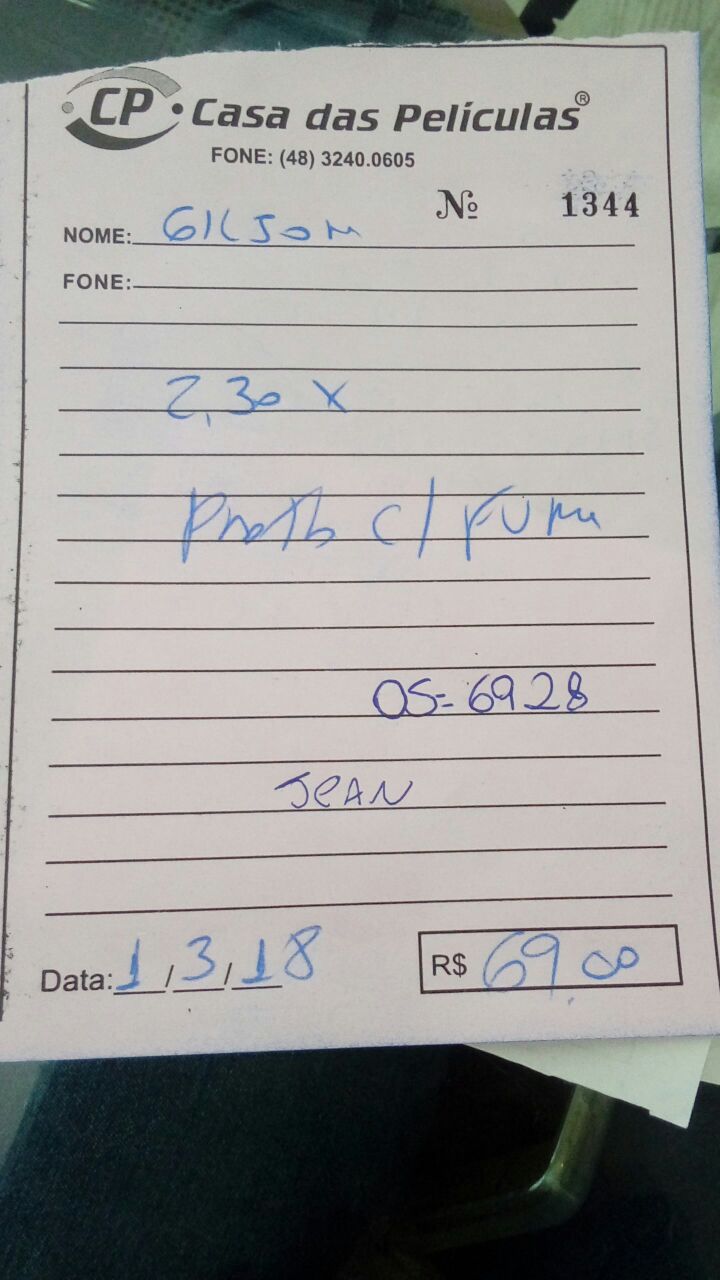 CP Casa das Películas®
FONE: (48) 3240.0605
Nº 1344
NOME: GILSOM
FONE:
2,30 X
c/
OS= 6928
JEAN
Data: 1/3/18 R$ 69,00